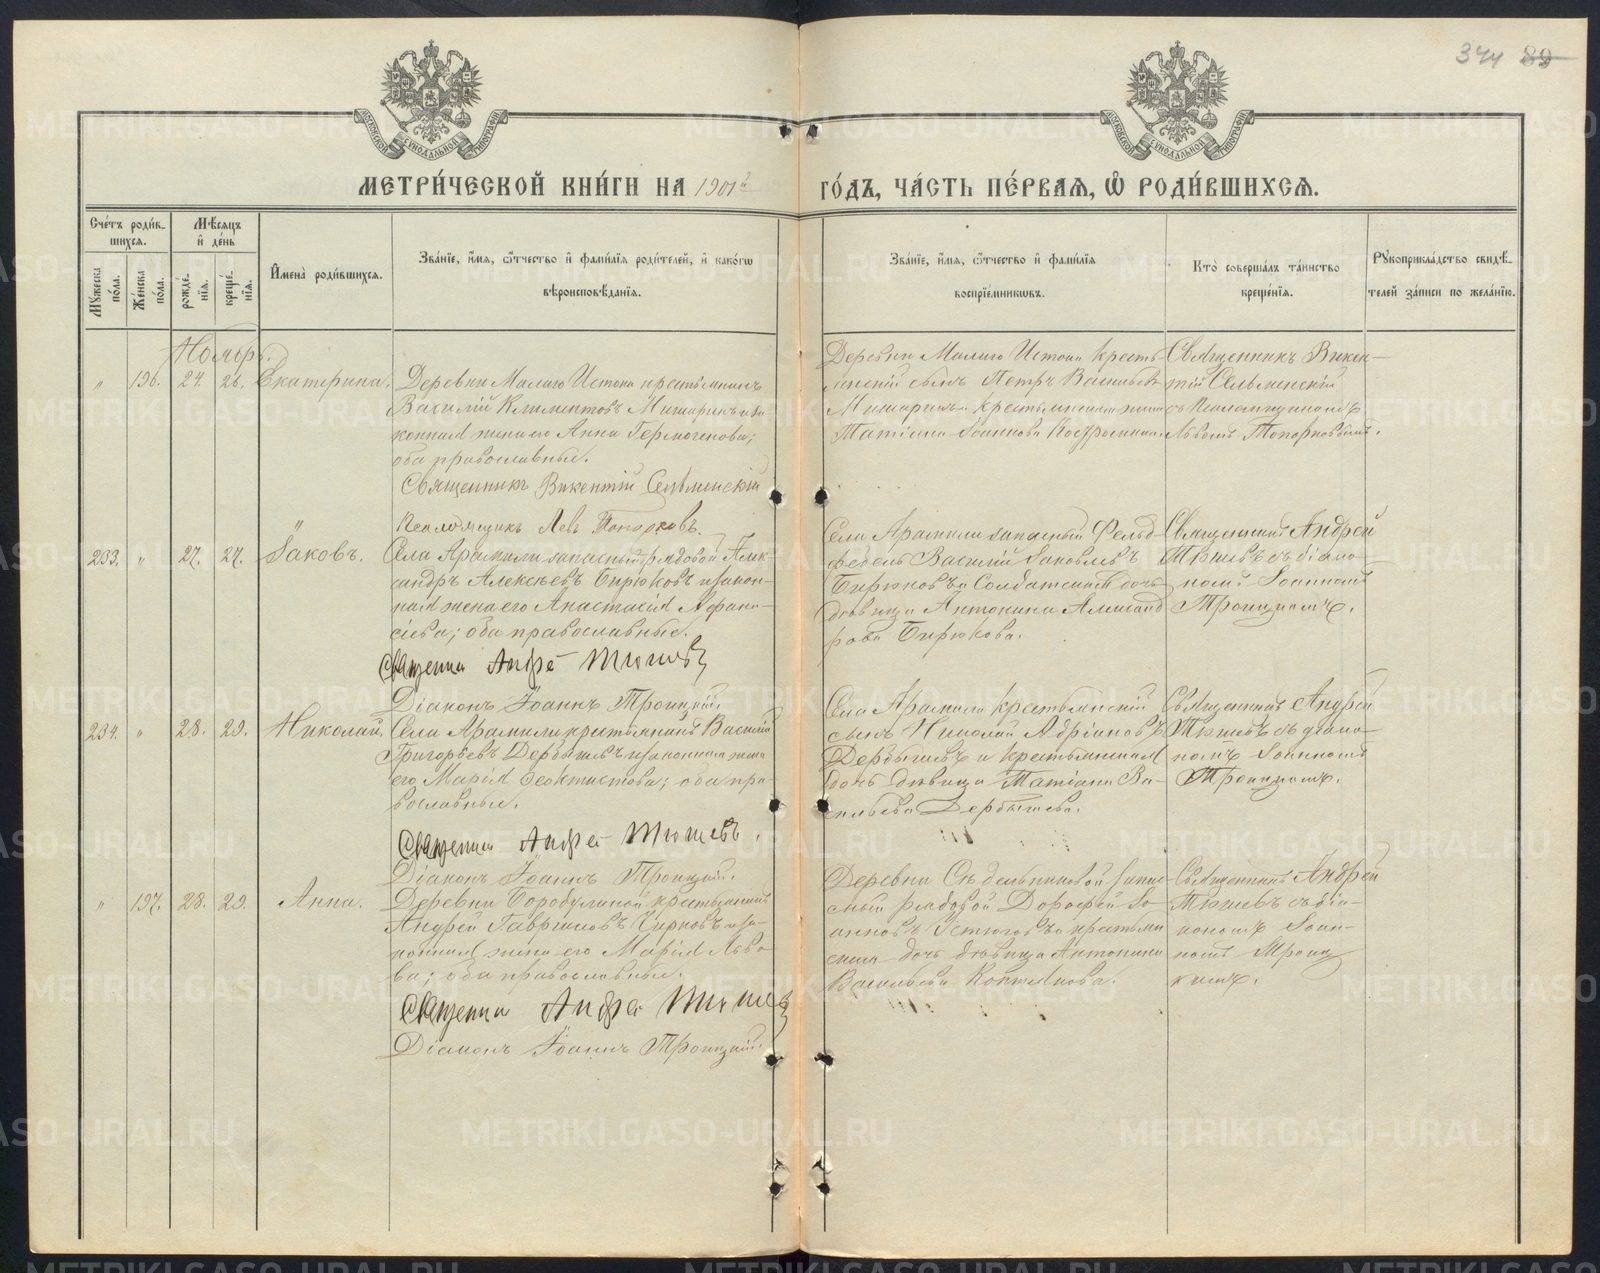 344 89
МОСКОВСКОЙ СѴНОДАЛЬНОЙ ТИПОГРАФІИ
МОСКОВСКОЙ СѴНОДАЛЬНОЙ ТИПОГРАФІИ
МЕТРИ́ЧЕСКОЙ КНИ́ГИ НА 1901й ГО́ДЪ, ЧА́СТЬ ПЕ́РВАЯ, Ѡ РОДИ́ВШИХСЯ.
Сче́тъ роди́в-
шихся.
Му́жеска по́ла.
Же́нска по́ла.
Мѣ́сяцъ
и҆ де́нь
рожде́нїя.
креще́нїя.
И҆мена̀ роди́вшихся.
Зва́нїе, и҆́мя, ѻ҆́тчество и҆ фамі́лїя роди́телей, и҆ како́гѡ
вѣроисповѣ́данїя.
Зва́нїе, и҆́мя, ѻ҆́тчество и҆ фамі́лїя
воспрїе́мникѡвъ.
Кто̀ соверша́лъ та́инство
креще́нїя.
Рꙋкоприкла́дство свидѣ́-
телей за́писи по жела́нїю.
Ноябрь.
" 196. 24. 26. Екатерина.
Деревни Малаго Истока крестьянинъ
Василій Климентовъ Мишаринъ и за-
конная жена его Анна Гермогенова;
оба православные.
Священникъ Викентій Сельменскій
Псаломщикъ Левъ Топорковъ.
Деревни Малаго Истока кресть-
янскій сынъ Петръ Васильевъ
Мишаринъ и крестьянская жена
Татіана Іоаннова
Священникъ Викен-
тій Сельменскій
съ Псаломщикомъ
Львомъ Топорковымъ.
233. " 27. 27. Іаковъ.
Села Арамили запасный рядовой Алек-
сандръ Алексѣевъ Бирюковъ и закон-
ная жена его Анастасія Афана-
сіева; оба православные.
Священник Андрей Тюшевъ
Діаконъ Іоаннъ Троицкій.
Села Арамили запасный Фельд-
фебель Василій Іаковлевъ
Бирюковъ и Солдатская дочь
дѣвица Антонина Александ-
рова Бирюкова.
Священникъ Андрей
Тюшевъ съ діако-
номъ Іоанномъ
Троицкимъ.
234. " 28. 29. Николай.
Села Арамили крестьянинъ Василій
Григорьевъ Дербышевъ и законная жена
его Марія Феоктистова; оба пра-
вославные.
Священник Андрей Тюшевъ.
Діаконъ Іоаннъ Троицкій.
Села Арамили крестьянскій
сынъ Николай Адріановъ
Дербышевъ и крестьянская
дочь дѣвица Татіана Ва-
сильева Дербышева.
Священникъ Андрей
Тюшевъ съ діако-
номъ Іоанномъ
Троицкимъ.
" 197. 28. 29. Анна.
Деревни Бородулиной крестьянинъ
Андрей Гавриловъ Чирковъ и за-
конная жена его Марія Льво-
ва; оба православные.
Священник Андрей Тюшевъ
Діаконъ Іоаннъ Троицкій.
Деревни Сѣдельниковой запа-
сный рядовой Дорофей Іо-
анновъ Устюговъ и крестьян-
ская дочь дѣвица Антонина
Васильева
Священникъ Андрей
Тюшевъ съ діа-
кономъ Іоан-
номъ Троиц-
кимъ.
METRIKI.GASO-URAL.RU